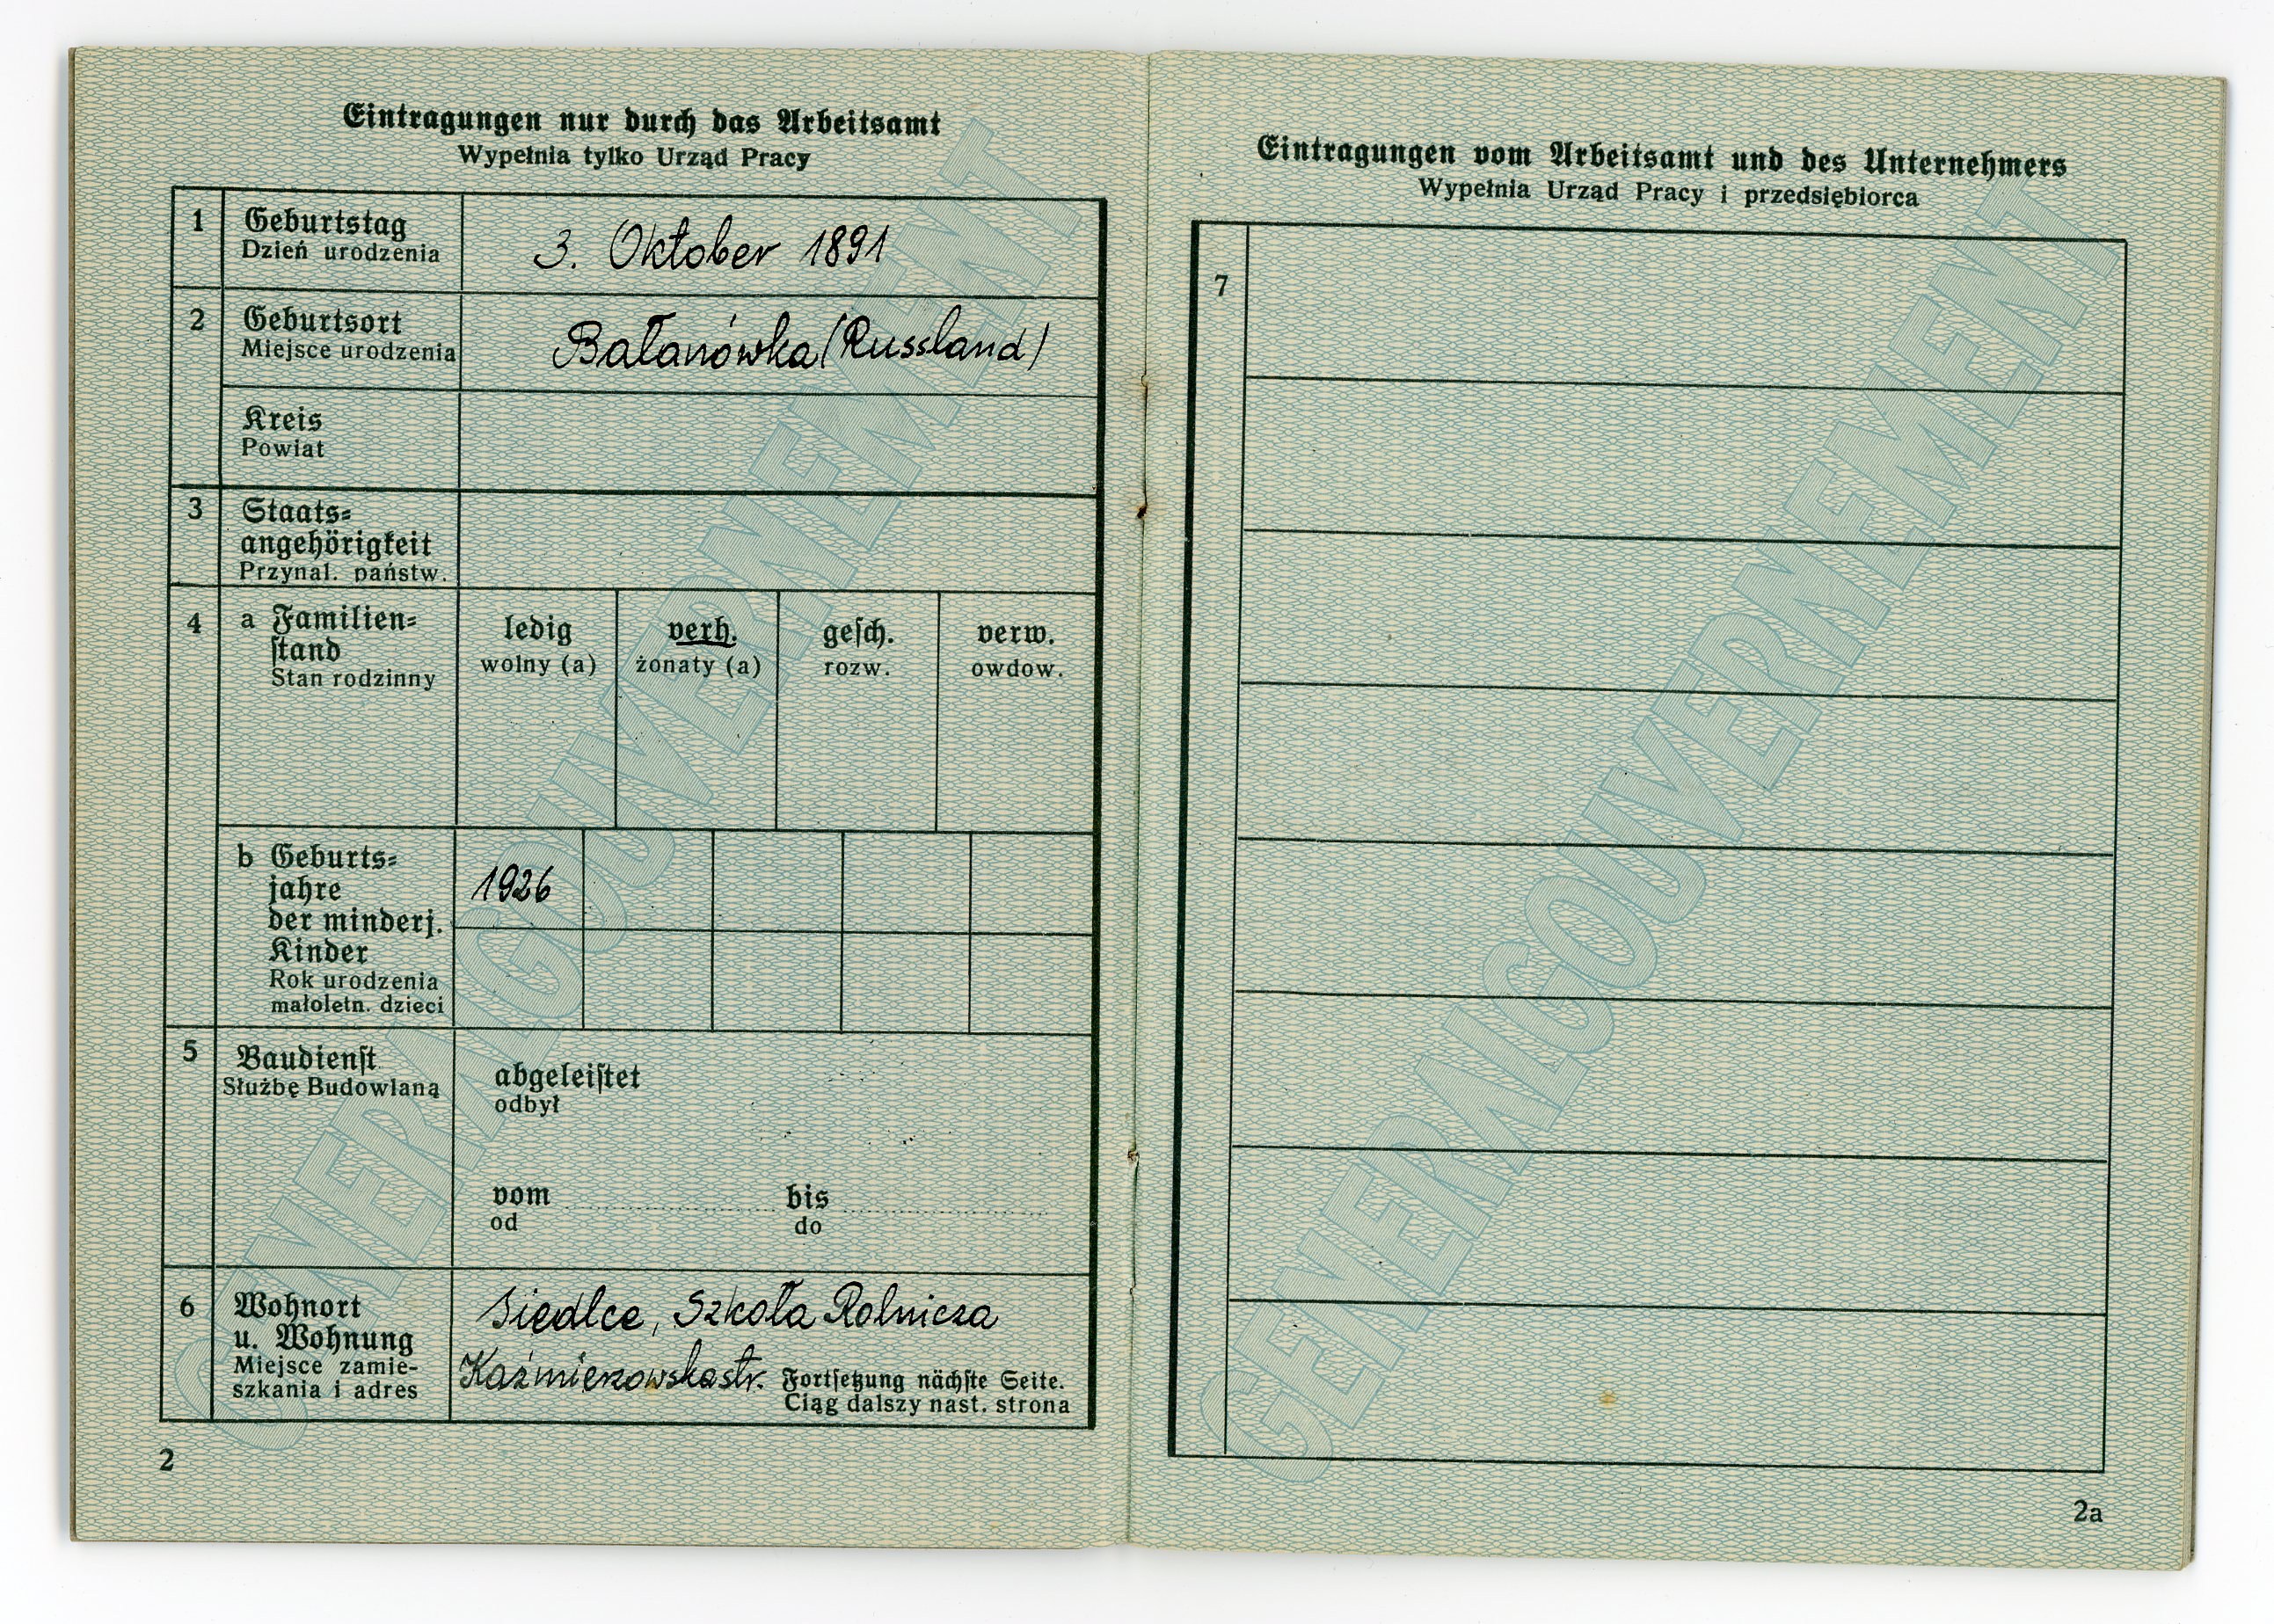 Eintragungen nur durch das Arbeitsamt
Wypełnia tylko Urząd Pracy
1 Geburtstag
Dzień urodzenia
3. Oktober 1891
2 Geburtsort
Miejsce urodzenia
Bałanówka (Russland)
Kreis
Powiat
3 Staats-
angehörigkeit
Przynal. państw.
4 a Familien-
stand
Stan rodzinny
ledig
wolny (a)
verh.
żonaty (a)
gesch.
rozw.
verw.
owdow.
b Geburts-
jahre
der minderj.
Kinder
Rok urodzenia
małoletn. dzieci
1926
5 Baudienst
Służbę Budowlaną
abgeleistet
odbył
vom bis
od do
6 Wohnort
u. Wohnung
Miejsce zamie-
szkania i adres
Siedlce, Szkoła Rolnicza
Kaźmierzowskastr.
Fortsetzung nächste Seite.
Ciąg dalszy nast. strona
2
GENERALGOUVERNEMENT
Eintragungen vom Arbeitsamt und des Unternehmers
Wypełnia Urząd Pracy i przedsiębiorca
7
2a
GENERALGOUVERNEMENT